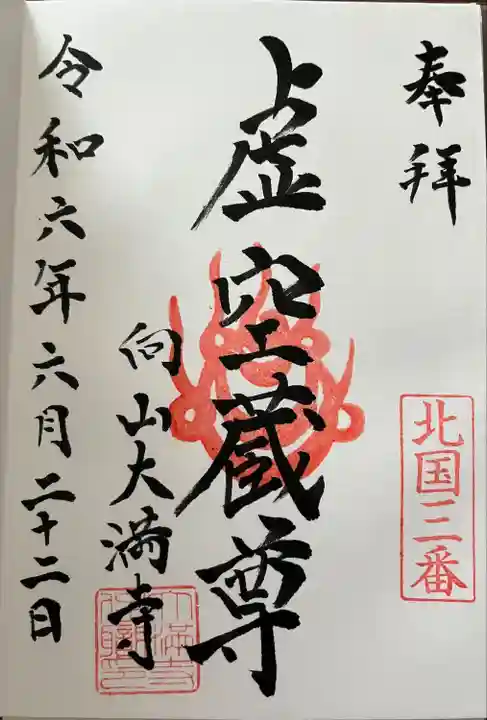 奉拝
北国三番
虚空蔵尊
向山大満寺
令和六年六月二十二日